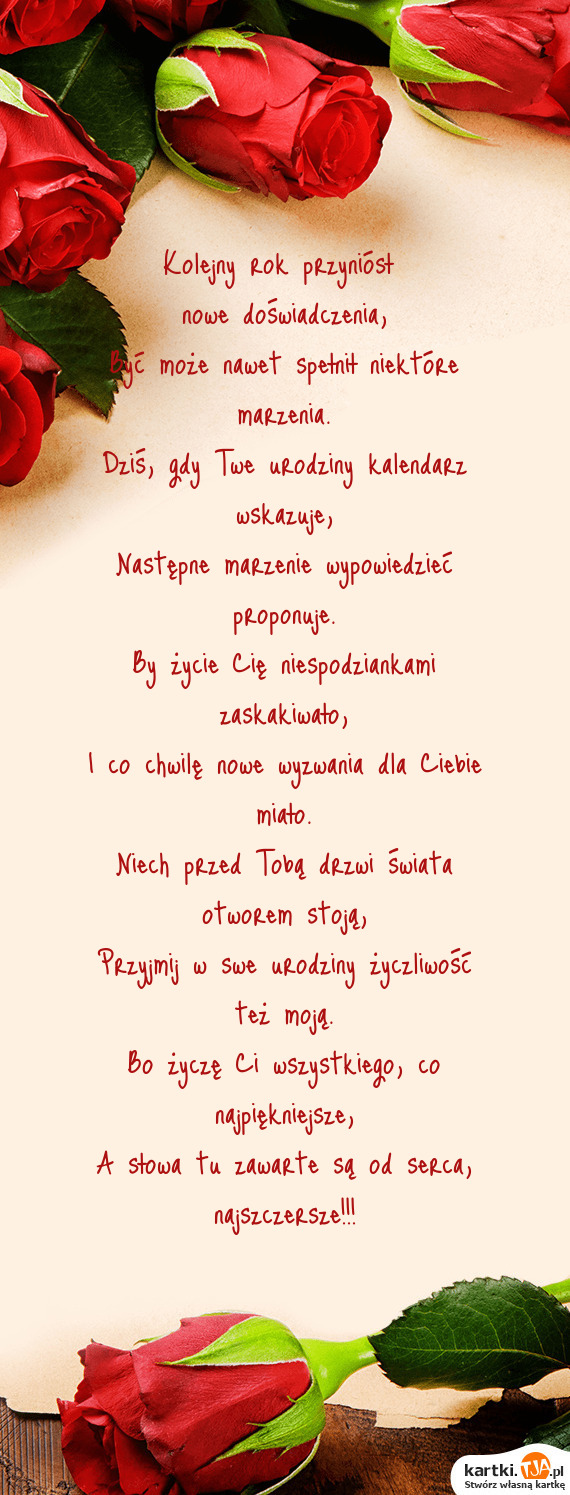 Kolejny rok przyniósł
nowe doświadczenia,
Być może nawet spełnił niektóre
marzenia.
Dziś, gdy Twe urodziny kalendarz
wskazuje,
Następne marzenie wypowiedzieć
proponuje.
By życie Cię niespodziankami
zaskakiwało,
I co chwilę nowe wyzwania dla Ciebie
miało.
Niech przed Tobą drzwi świata
otworem stoją,
Przyjmij w swe urodziny życzliwość
też moją.
Bo życzę Ci wszystkiego, co
najpiękniejsze,
A słowa tu zawarte są od serca,
najszczersze!!!
kartki.TJA.pl
Stwórz własną kartkę